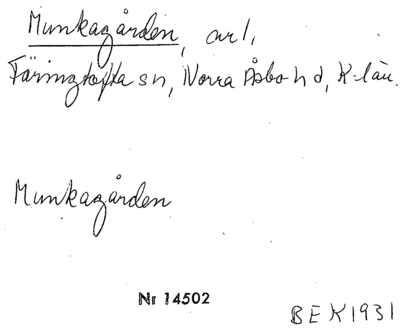 Munkagården, arl,
Färingtofta sn, Norra Åsbo hd, K-län.
Munkagården
Nr 14502
BEK1931